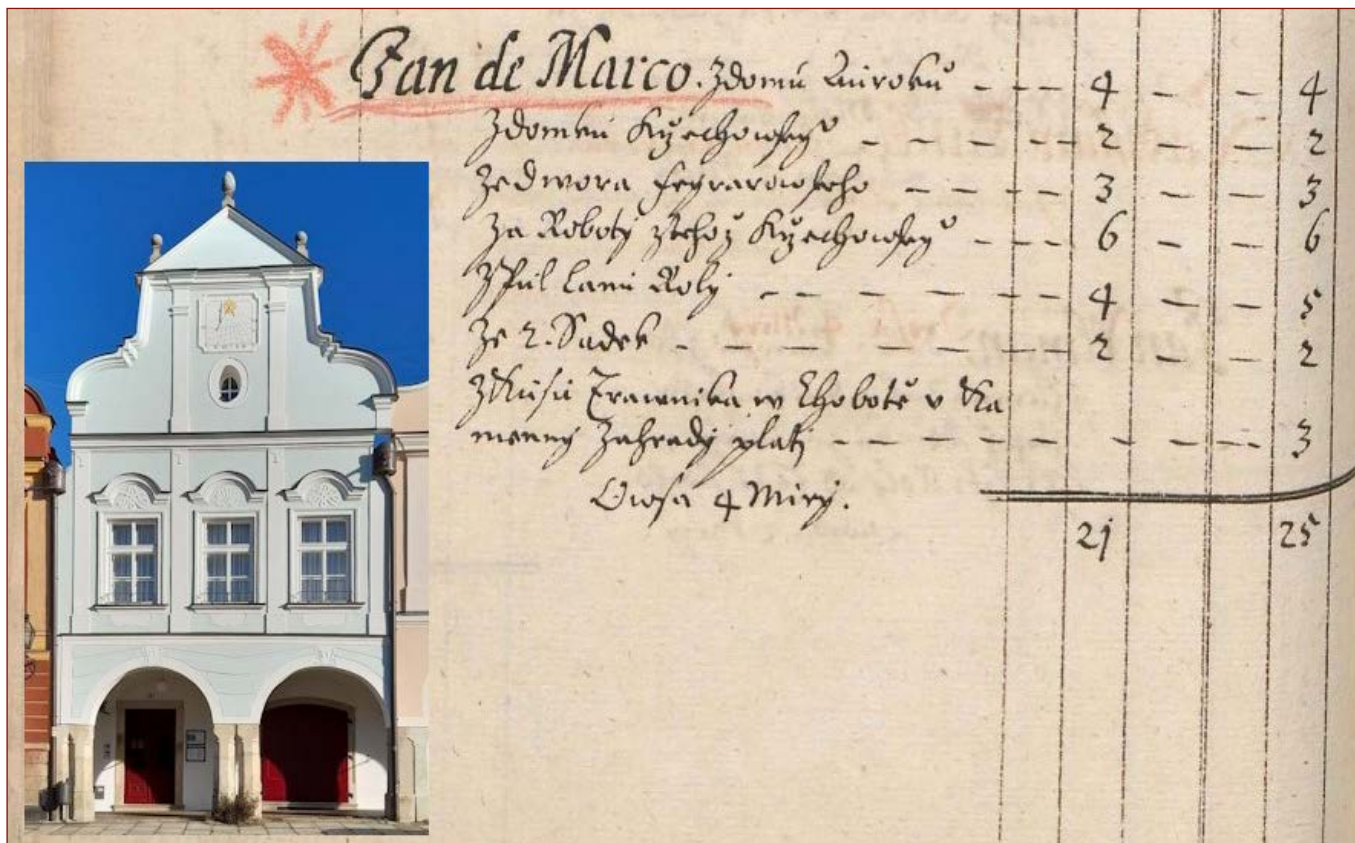 Jan de Marco. Zdomu Auroku - - - 4 - - 4
Zdomku Kržechowskyº - - - - - 2 - - 2
Ze dwora fegrarowskeho - - - 3 - - 3
Za Roboty ztehož Kržechowskyº - - - 6 - - 6
Z Pul Lanu Roly - - - - - - 4 - - 5
Ze 2. Sadek - - - - - - - - 2 - - 2
Z Kusu Trawnika w Chobotě v Ka
menny Zahrady platj - - - - - - - - 3
Owsa 4 Miry.
2j 25